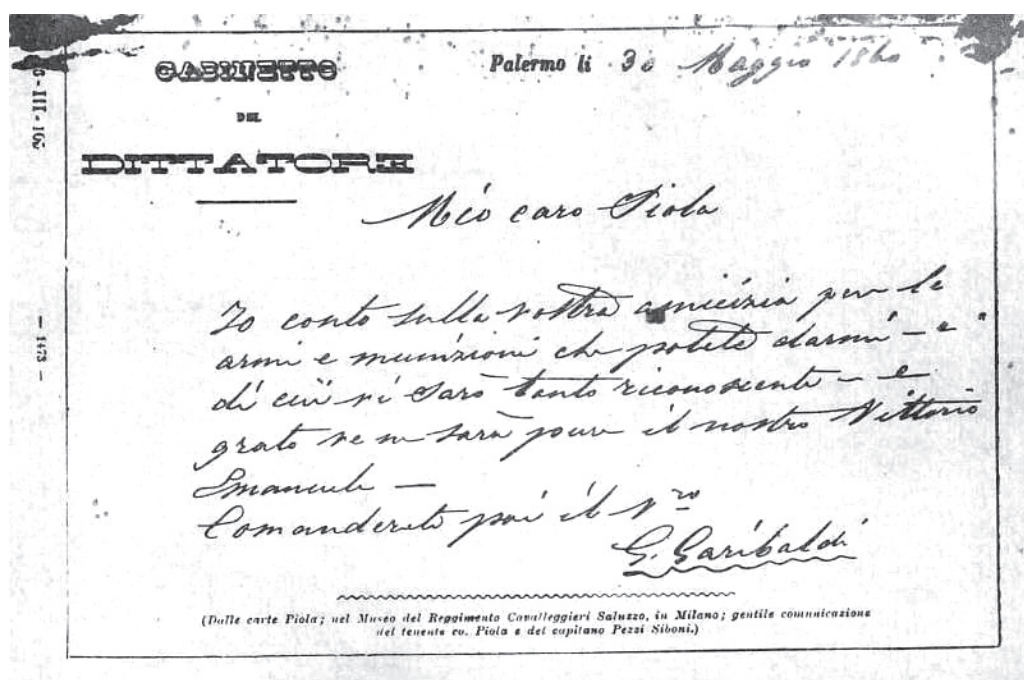 GABINETTO
DEL
DITTATORE
Palermo li 30 Maggio 1860
Mio caro Piola
Io conto sulla vostra amicizia per le
armi e munizioni che potete darmi – e
di cui vi sarò tanto riconoscente – e
grato ve ne sarà pure il nostro Vittorio
Emanuele —
Comanderete poi il Vro
G. Garibaldi
(Dalle carte Piola; nel Museo del Reggimento Cavalleggieri Saluzzo, in Milano; gentile comunicazione
del tenente co. Piola e del capitano Pezzi Siboni.)
— 1473 —